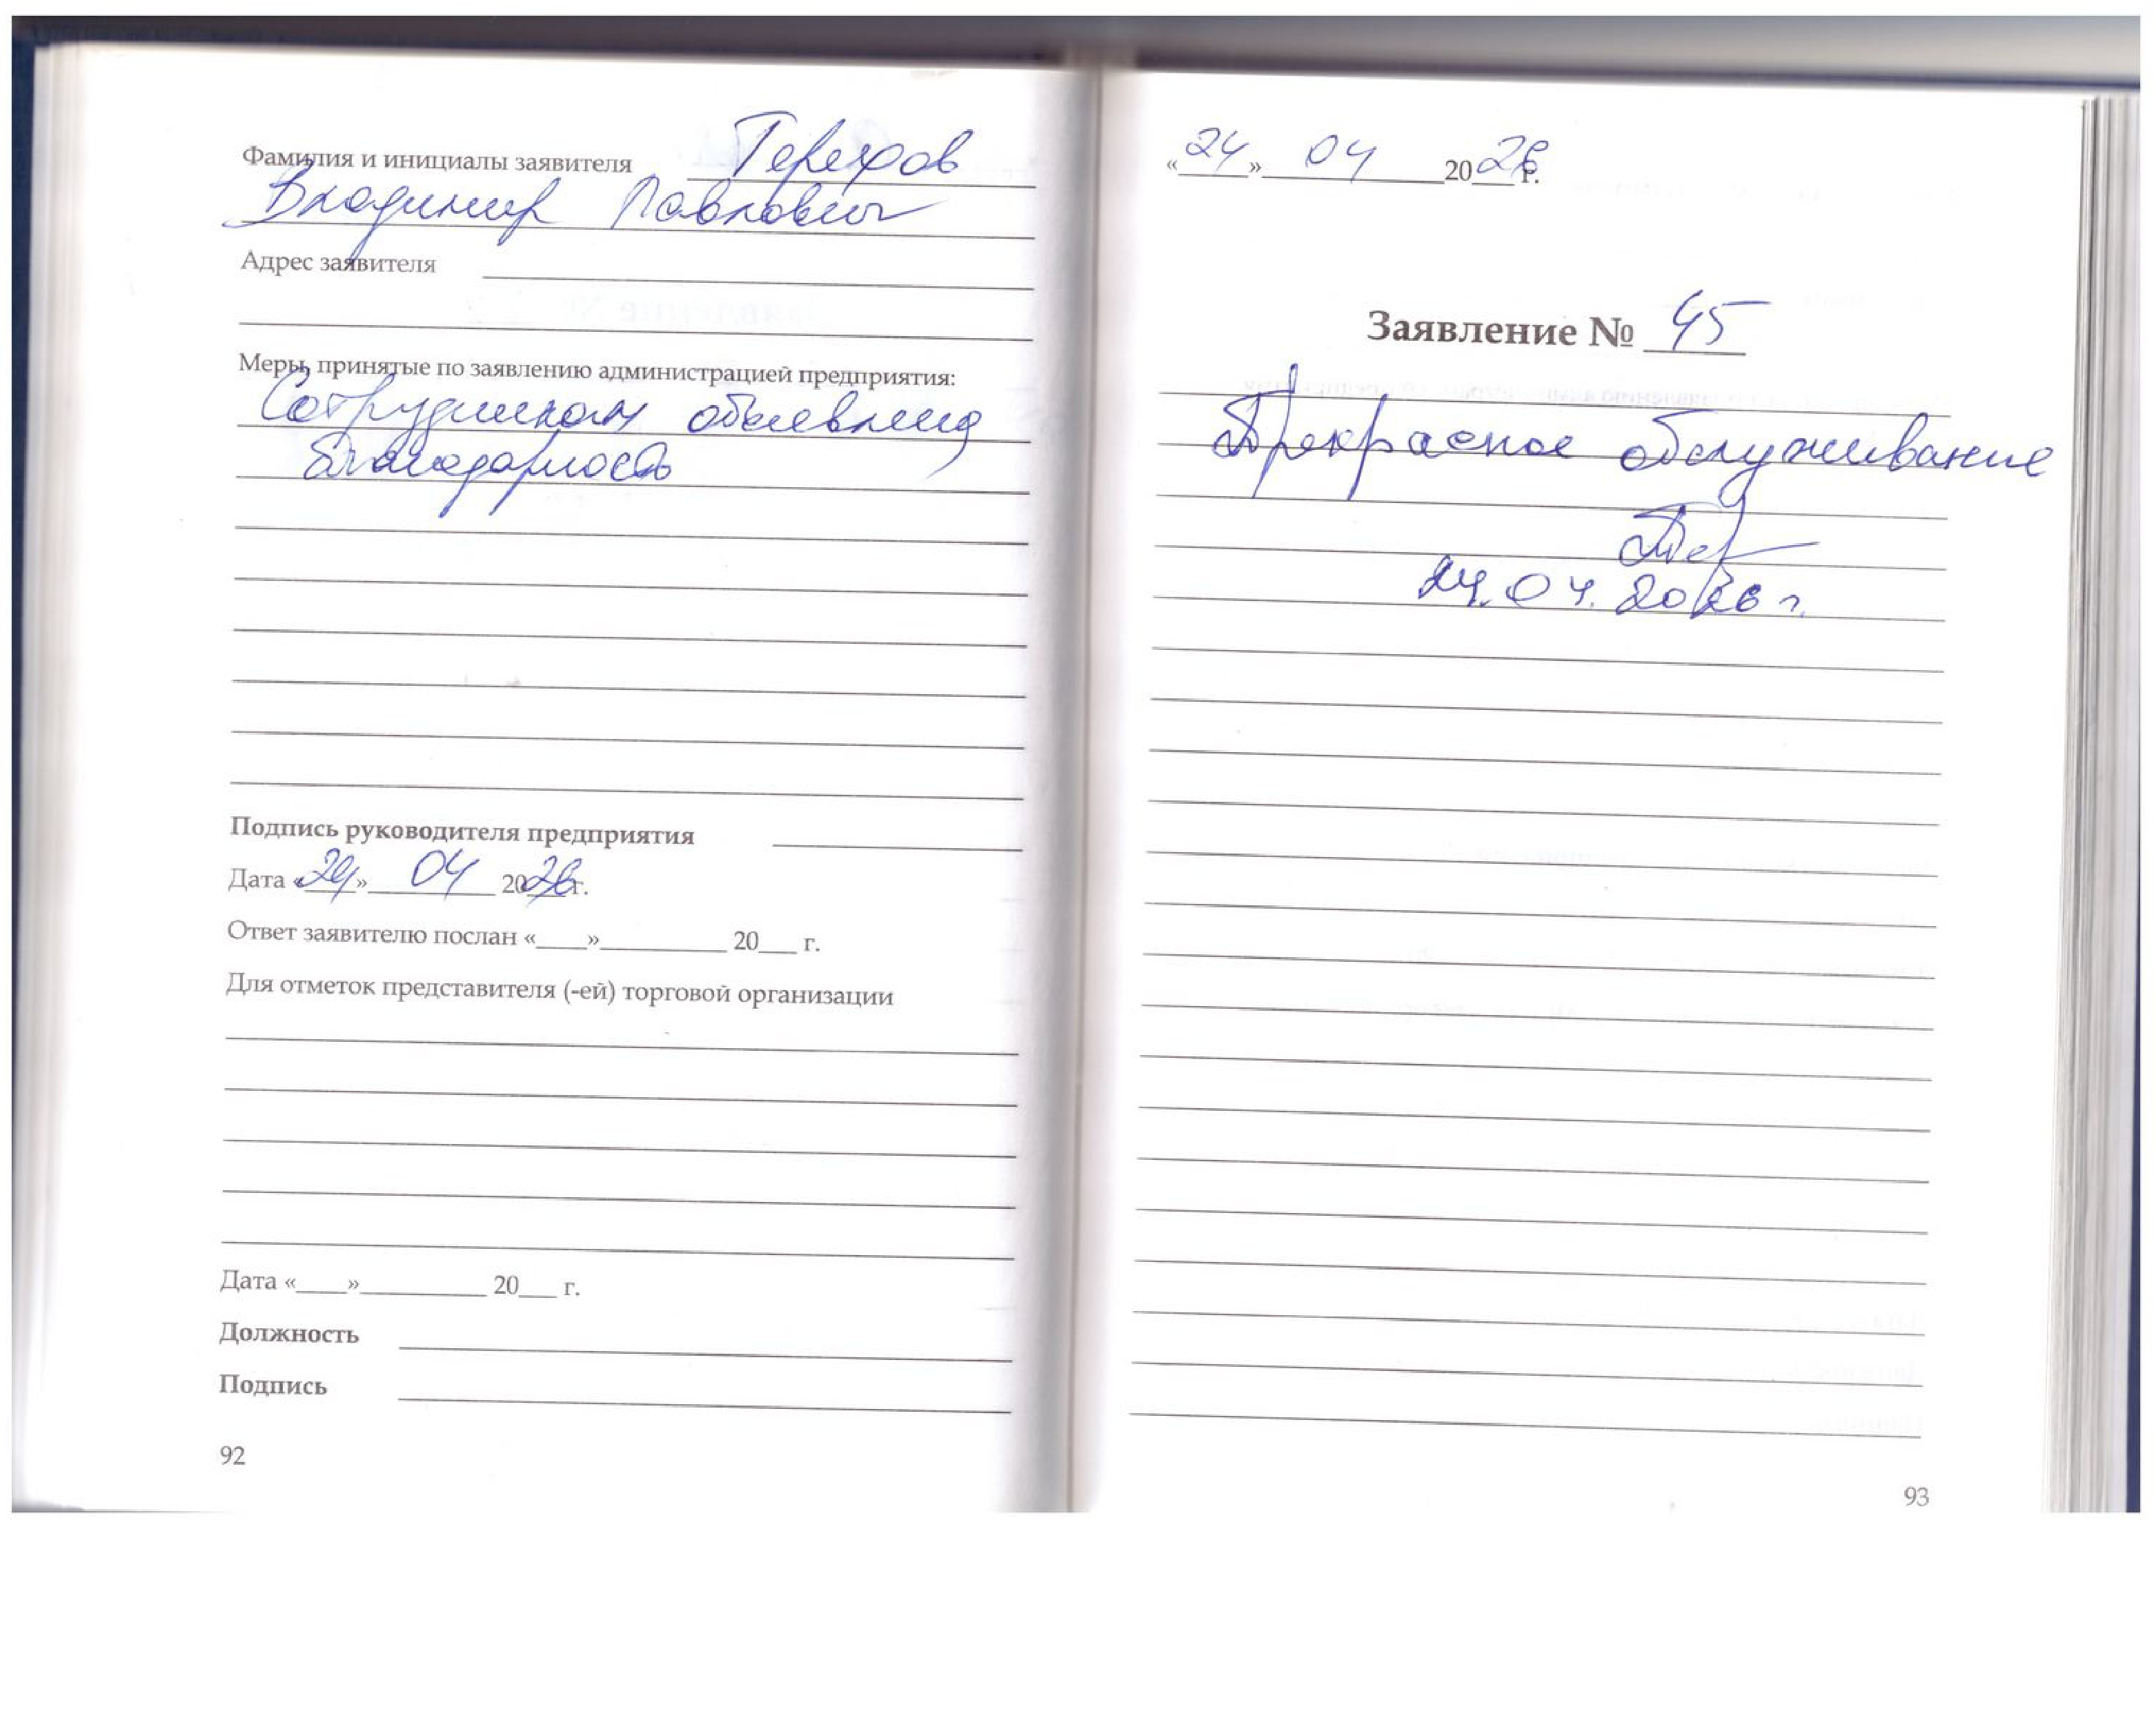 Фамилия и инициалы заявителя Терехов
Владимир Павлович
Адрес заявителя
Меры, принятые по заявлению администрацией предприятия:
Сотрудникам объявлена
благодарность
Подпись руководителя предприятия
Дата «24» 04 2026 г.
Ответ заявителю послан «____»__________ 20___ г.
Для отметок представителя (-ей) торговой организации
Дата «____»__________ 20___ г.
Должность
Подпись
92
«24» 04 2026 г.
Заявление № 45
Прекрасное обслуживание
24.04.2026 г.
93